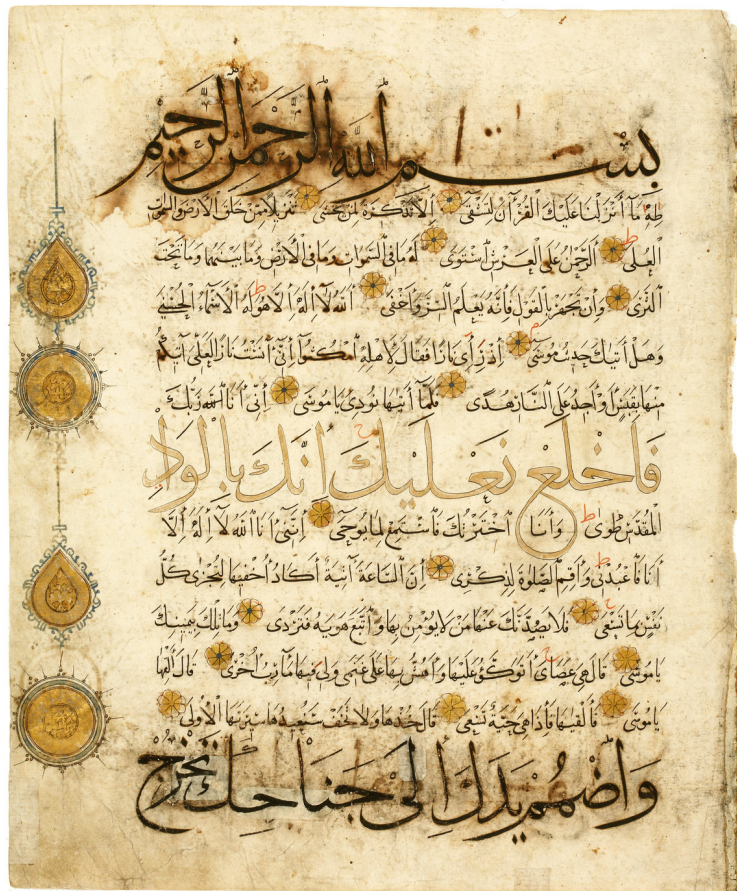 بسم الله الرحمن الرحيم
طه ما أنزلنا عليك القرآن لتشقى إلا تذكرة لمن يخشى تنزيلا ممن خلق الأرض والسموات
العلى الرحمن على العرش استوى له ما في السموات وما في الأرض وما بينهما وما تحت
الثرى وإن تجهر بالقول فإنه يعلم السر وأخفى الله لا إله إلا هو له الأسماء الحسنى
وهل أتيك حديث موسى إذ رأى نارا فقال لأهله امكثوا إني آنست نارا لعلي آتيكم
منها بقبس أو أجد على النار هدى فلما أتيها نودي ياموسى إني أنا ربك
فاخلع نعليك إنك بالواد
المقدس طوى وأنا اخترتك فاستمع لما يوحى إنني أنا الله لا إله إلا
أنا فاعبدني وأقم الصلوة لذكري إن الساعة آتية أكاد أخفيها لتجزى كل
نفس بما تسعى فلا يصدنك عنها من لا يؤمن بها واتبع هويه فتردى وما تلك بيمينك
ياموسى قال هي عصاي أتوكؤ عليها وأهش بها على غنمي ولي فيها مآرب أخرى قال ألقها
ياموسى فألقيها فإذا هي حية تسعى قال خذها ولا تخف سنعيدها سيرتها الأولى
واضمم يدك إلى جناحك تخرج